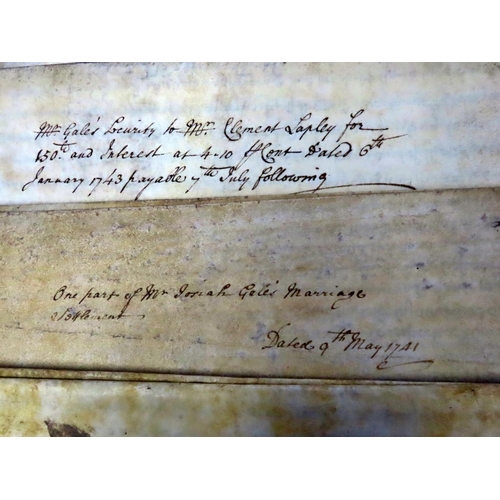 Mr Gale's Security to Mr Clement Lapley for
150£ and Interest at 4-10 ⅌ Cent Dated 6th
January 1743 payable 7th July following
One part of Mr Josiah Gale's Marriage
Settlement
Dated 9th May 1741